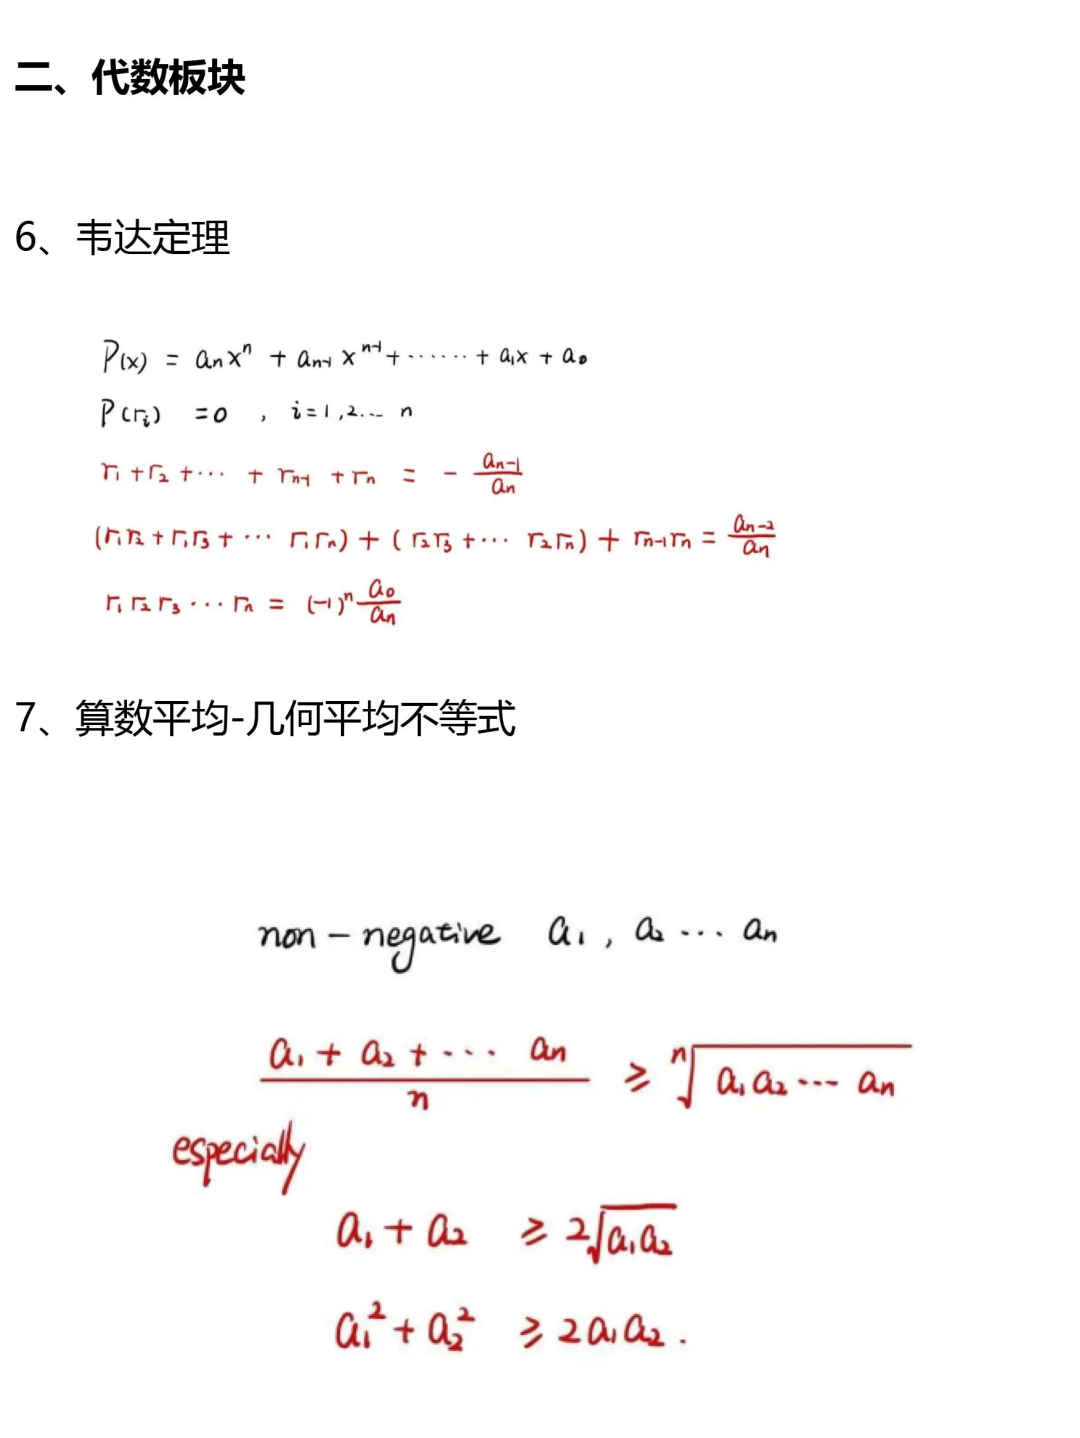 二、代数板块
6、韦达定理
P(x) = aₙxⁿ + aₙ₋₁xⁿ⁻¹ + ······ + a₁x + a₀
P(rᵢ) = 0 , i = 1, 2... n
r₁ + r₂ + ··· + rₙ₋₁ + rₙ = - aₙ₋₁/aₙ
(r₁r₂ + r₁r₃ + ··· r₁rₙ) + ( r₂r₃ + ··· r₂rₙ) + rₙ₋₁rₙ = aₙ₋₂/aₙ
r₁r₂r₃ ··· rₙ = (-1)ⁿ a₀/aₙ
7、算数平均-几何平均不等式
non-negative a₁, a₂ ··· aₙ
(a₁ + a₂ + ··· aₙ)/n ≥ ⁿ√(a₁a₂ ··· aₙ)
especially
a₁ + a₂ ≥ 2√(a₁a₂)
a₁² + a₂² ≥ 2a₁a₂.